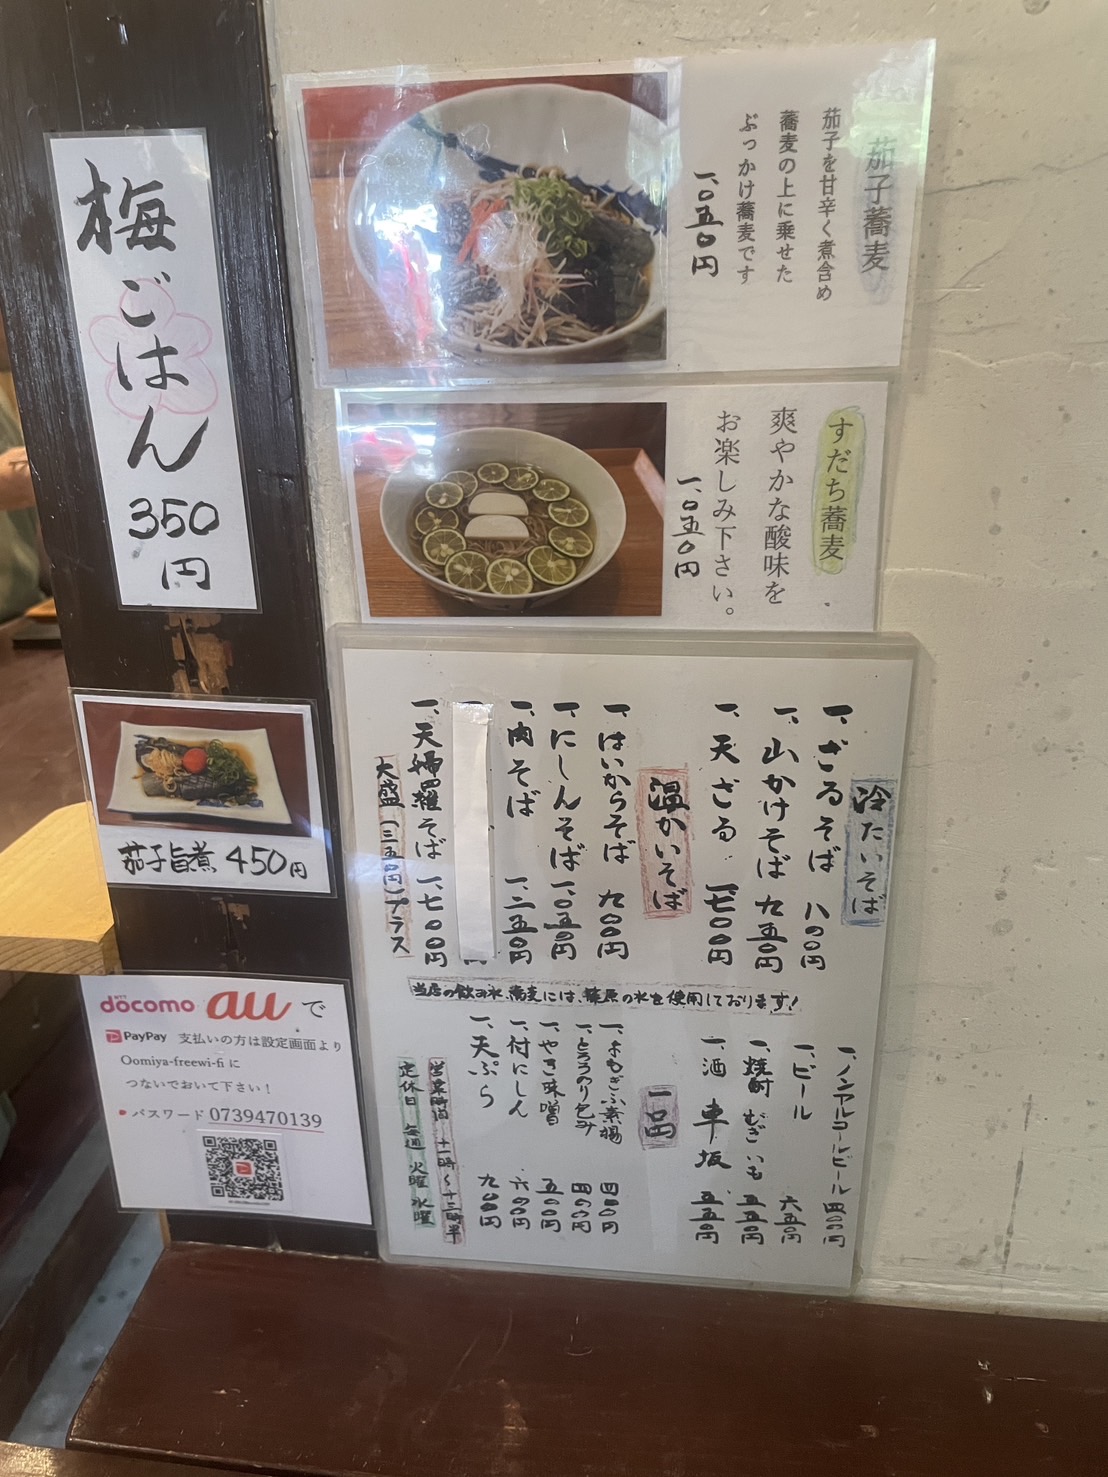 梅ごはん
350
円
茄子旨煮 450円
docomo au で
PayPay 支払いの方は設定画面より
Oomiya-freewi-fi に
つないでおいて下さい！
パスワード 0739470139
茄子蕎麦
茄子を甘辛く煮含め
蕎麦の上に乗せた
ぶっかけ蕎麦です
一、〇五〇円
すだち蕎麦
爽やかな酸味を
お楽しみ下さい。
一、〇五〇円
冷たいそば
一、ざるそば 八〇〇円
一、山かけそば 九五〇円
一、天ざる 一、七〇〇円
温かいそば
一、はいからそば 九〇〇円
一、にしんそば 一、〇五〇円
一、肉そば 一、二五〇円
一、天婦羅そば 一、七〇〇円
大盛（三五〇円）プラス
当店の飲み水、蕎麦には、藤原の水を使用しております！
一、ノンアルコールビール 四〇〇円
一、ビール 六五〇円
一、焼酎 むぎ いも 五五〇円
一、酒 車坂 五五〇円
一口
一、よもぎふ素揚 四〇〇円
一、とろろのり包み 四〇〇円
一、やき味噌 五〇〇円
一、付にしん 六〇〇円
一、天ぷら 九〇〇円
営業時間 十一時〜十三時半
定休日 毎週 火曜 水曜